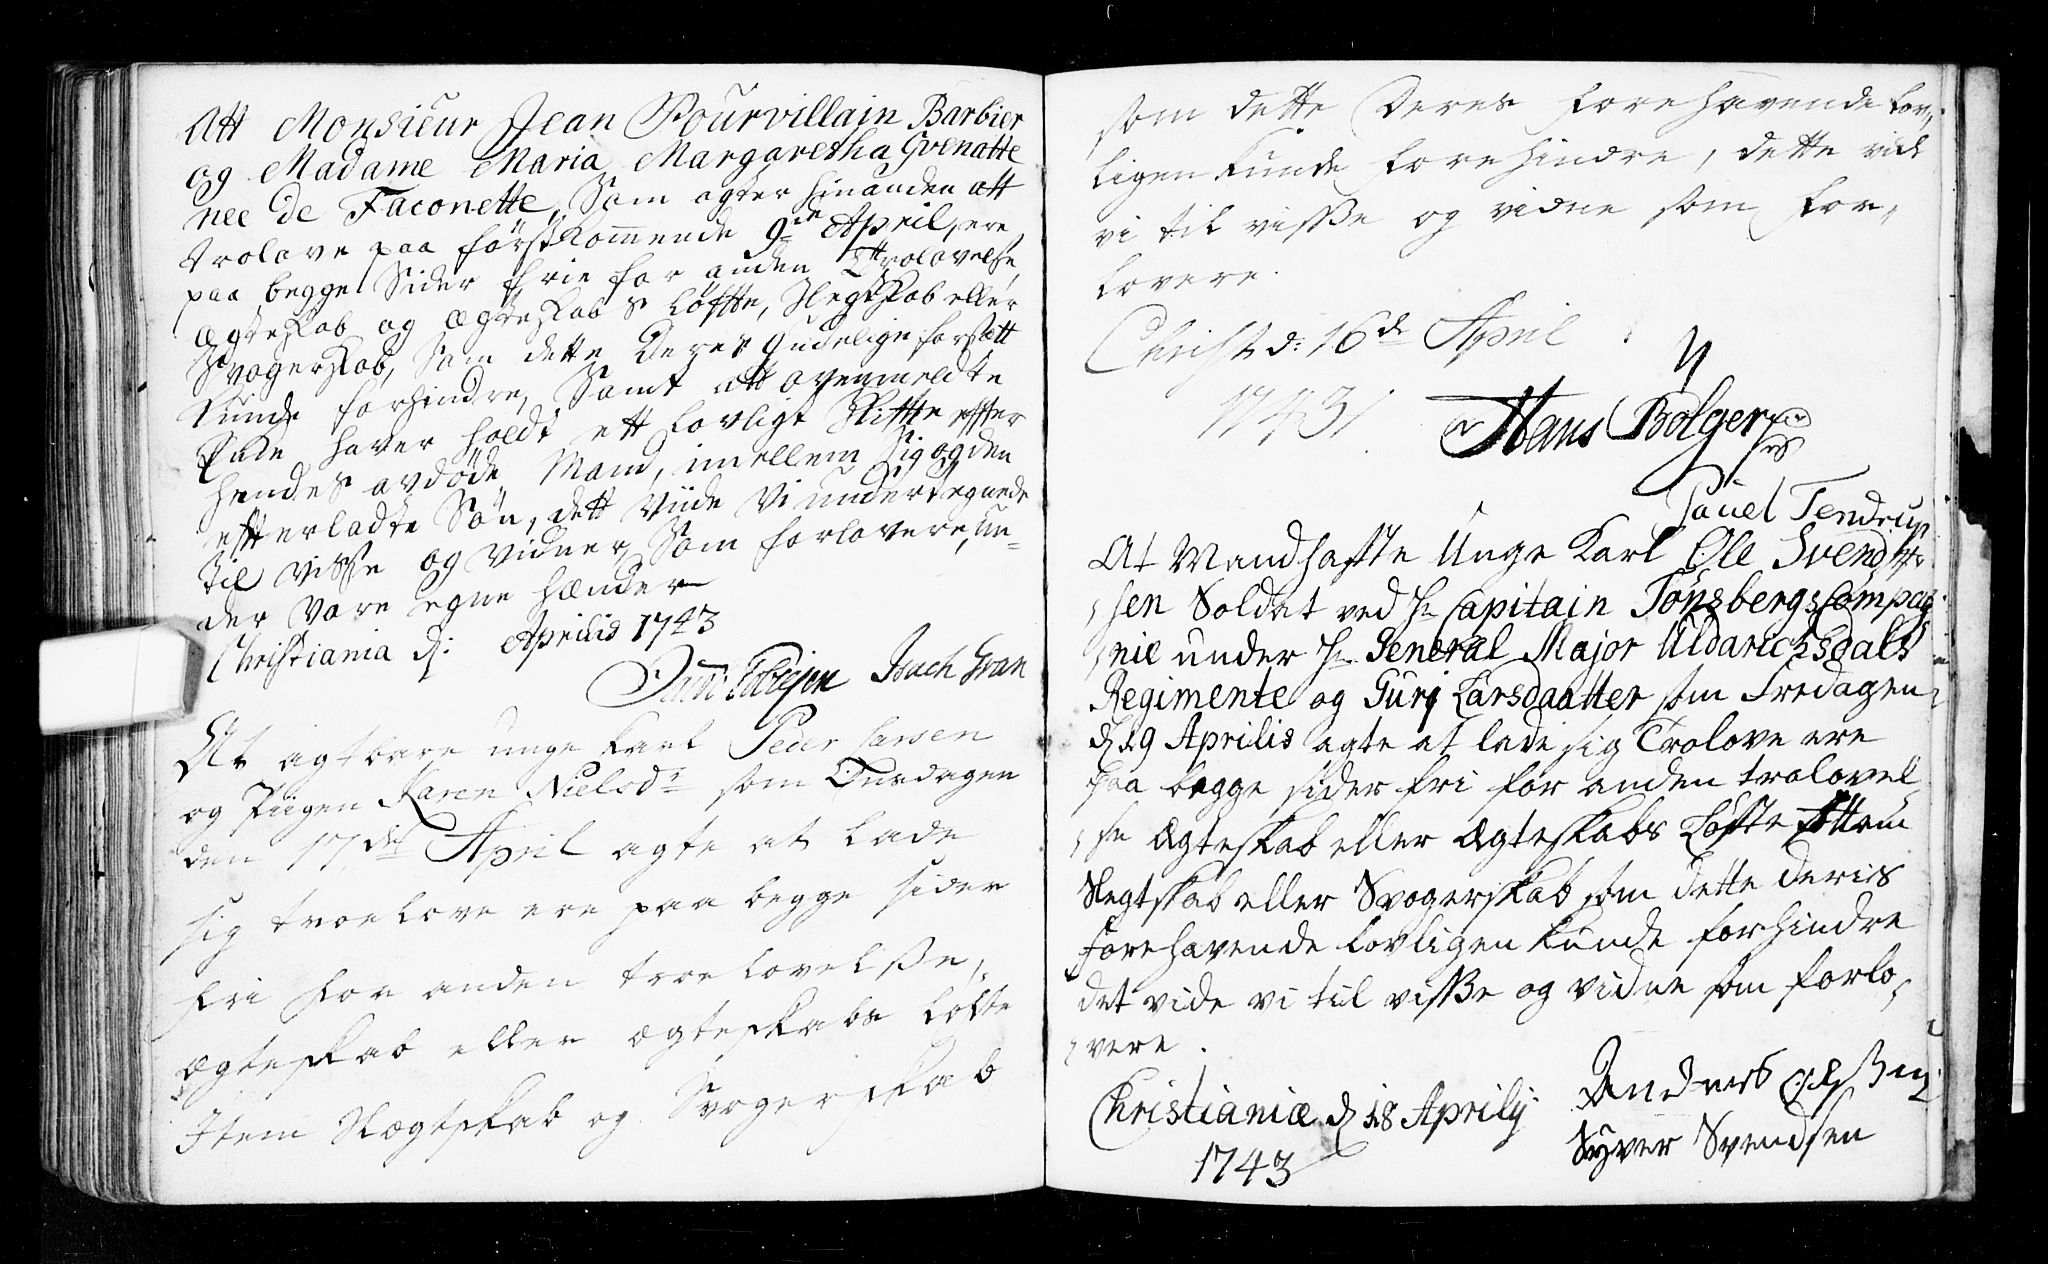 Att Monsieur Jean Pourvillain Barbier
og Madame Maria Margaretha Grenatte
nee de Faconette, Som agter hinanden att
trolove paa förstkommende 9de April, ere
paa begge Sider frie for anden Trolovelse
Ægteskab og Ægteskabs Løffte, Slegtskab eller
Svogerskab, Som dette Deres gudelige forsætt
kunde forhindre, Samt att ovenmeldte
Enke haver holdt ett lovligt Skiffte effter
hendes avdöde Mand, imellem Sig og den
effterladte Sön, dett Viide Vi undertegnede
til Visse og Vidner Som forlovere, un-
der Vore egne hænder
Christiania d: Aprilis 1743
Isach Gran
At agtbare unge Karl Peder Larsen
og Piigen Karen Nielsdr som Onsdagen
den 17de April agte at lade
sig troelove ere paa begge sider
fri for anden troelovelsse,
ægteskab eller ægteskabs løfte
Item Slægtskab og Svogerskab
som dette Deres forehavende lov„
ligen kunde forehindre, dette vide
vi til visse og vidne som for„
lovere.
Christ d: 16de April
1743
Hans Bolger
Pouel Tendrup
At Mandhaffte Unge Karl Ole Svend
„sen Soldat ved Hr Capitain Tönsbergs Compag
„nie under Hr General Major Uldarichsdals
Regimente og Gurj Larsdaatter som Fredagen
d 19 Aprilis agte at lade sig Trolove ere
paa begge sider fri for anden trolovel
„se Ægteskab eller Ægteskabs Löfte Ittem
Slegtskab eller Svogerskab som dette deris
forehavende lovligen kunde forhindre
det vide vi til visse og vidne som forlo„
„vere.
Christianiæ d 18 Aprilij
1743
Anders Olssen
Syver Svendsen